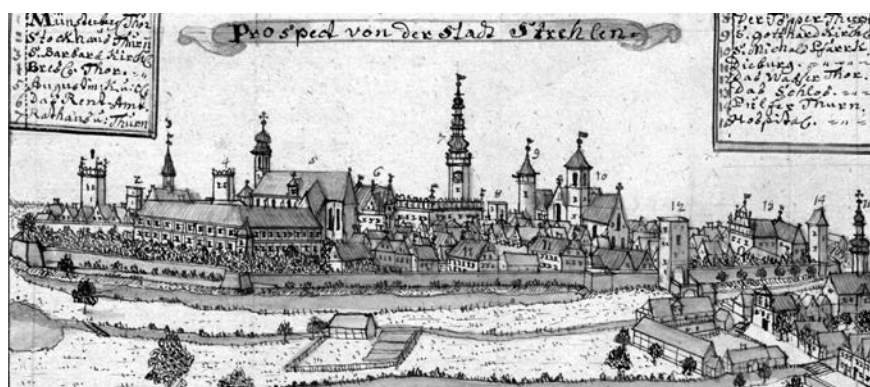 Prospect von der Stadt Strehlen.
Münsterberg Thor
2 Stockhaus Thurn
3 S. Barbara Kirch
4 Bresl. Thor.
5 Augustin Kirch
6 Das Rent Amt.
7 Rathaus u. Thurn
8 Der Töpper Thurn
9 S. Gotthard Kirch
10 S. Michael Pfarrk.
11 Die burg.
12 Das Wasser Thor.
13 Das Schloß.
14 Pilfer Thurn.
Hospital.
2
3
4
5
6
7
8
9
10
12
13
14